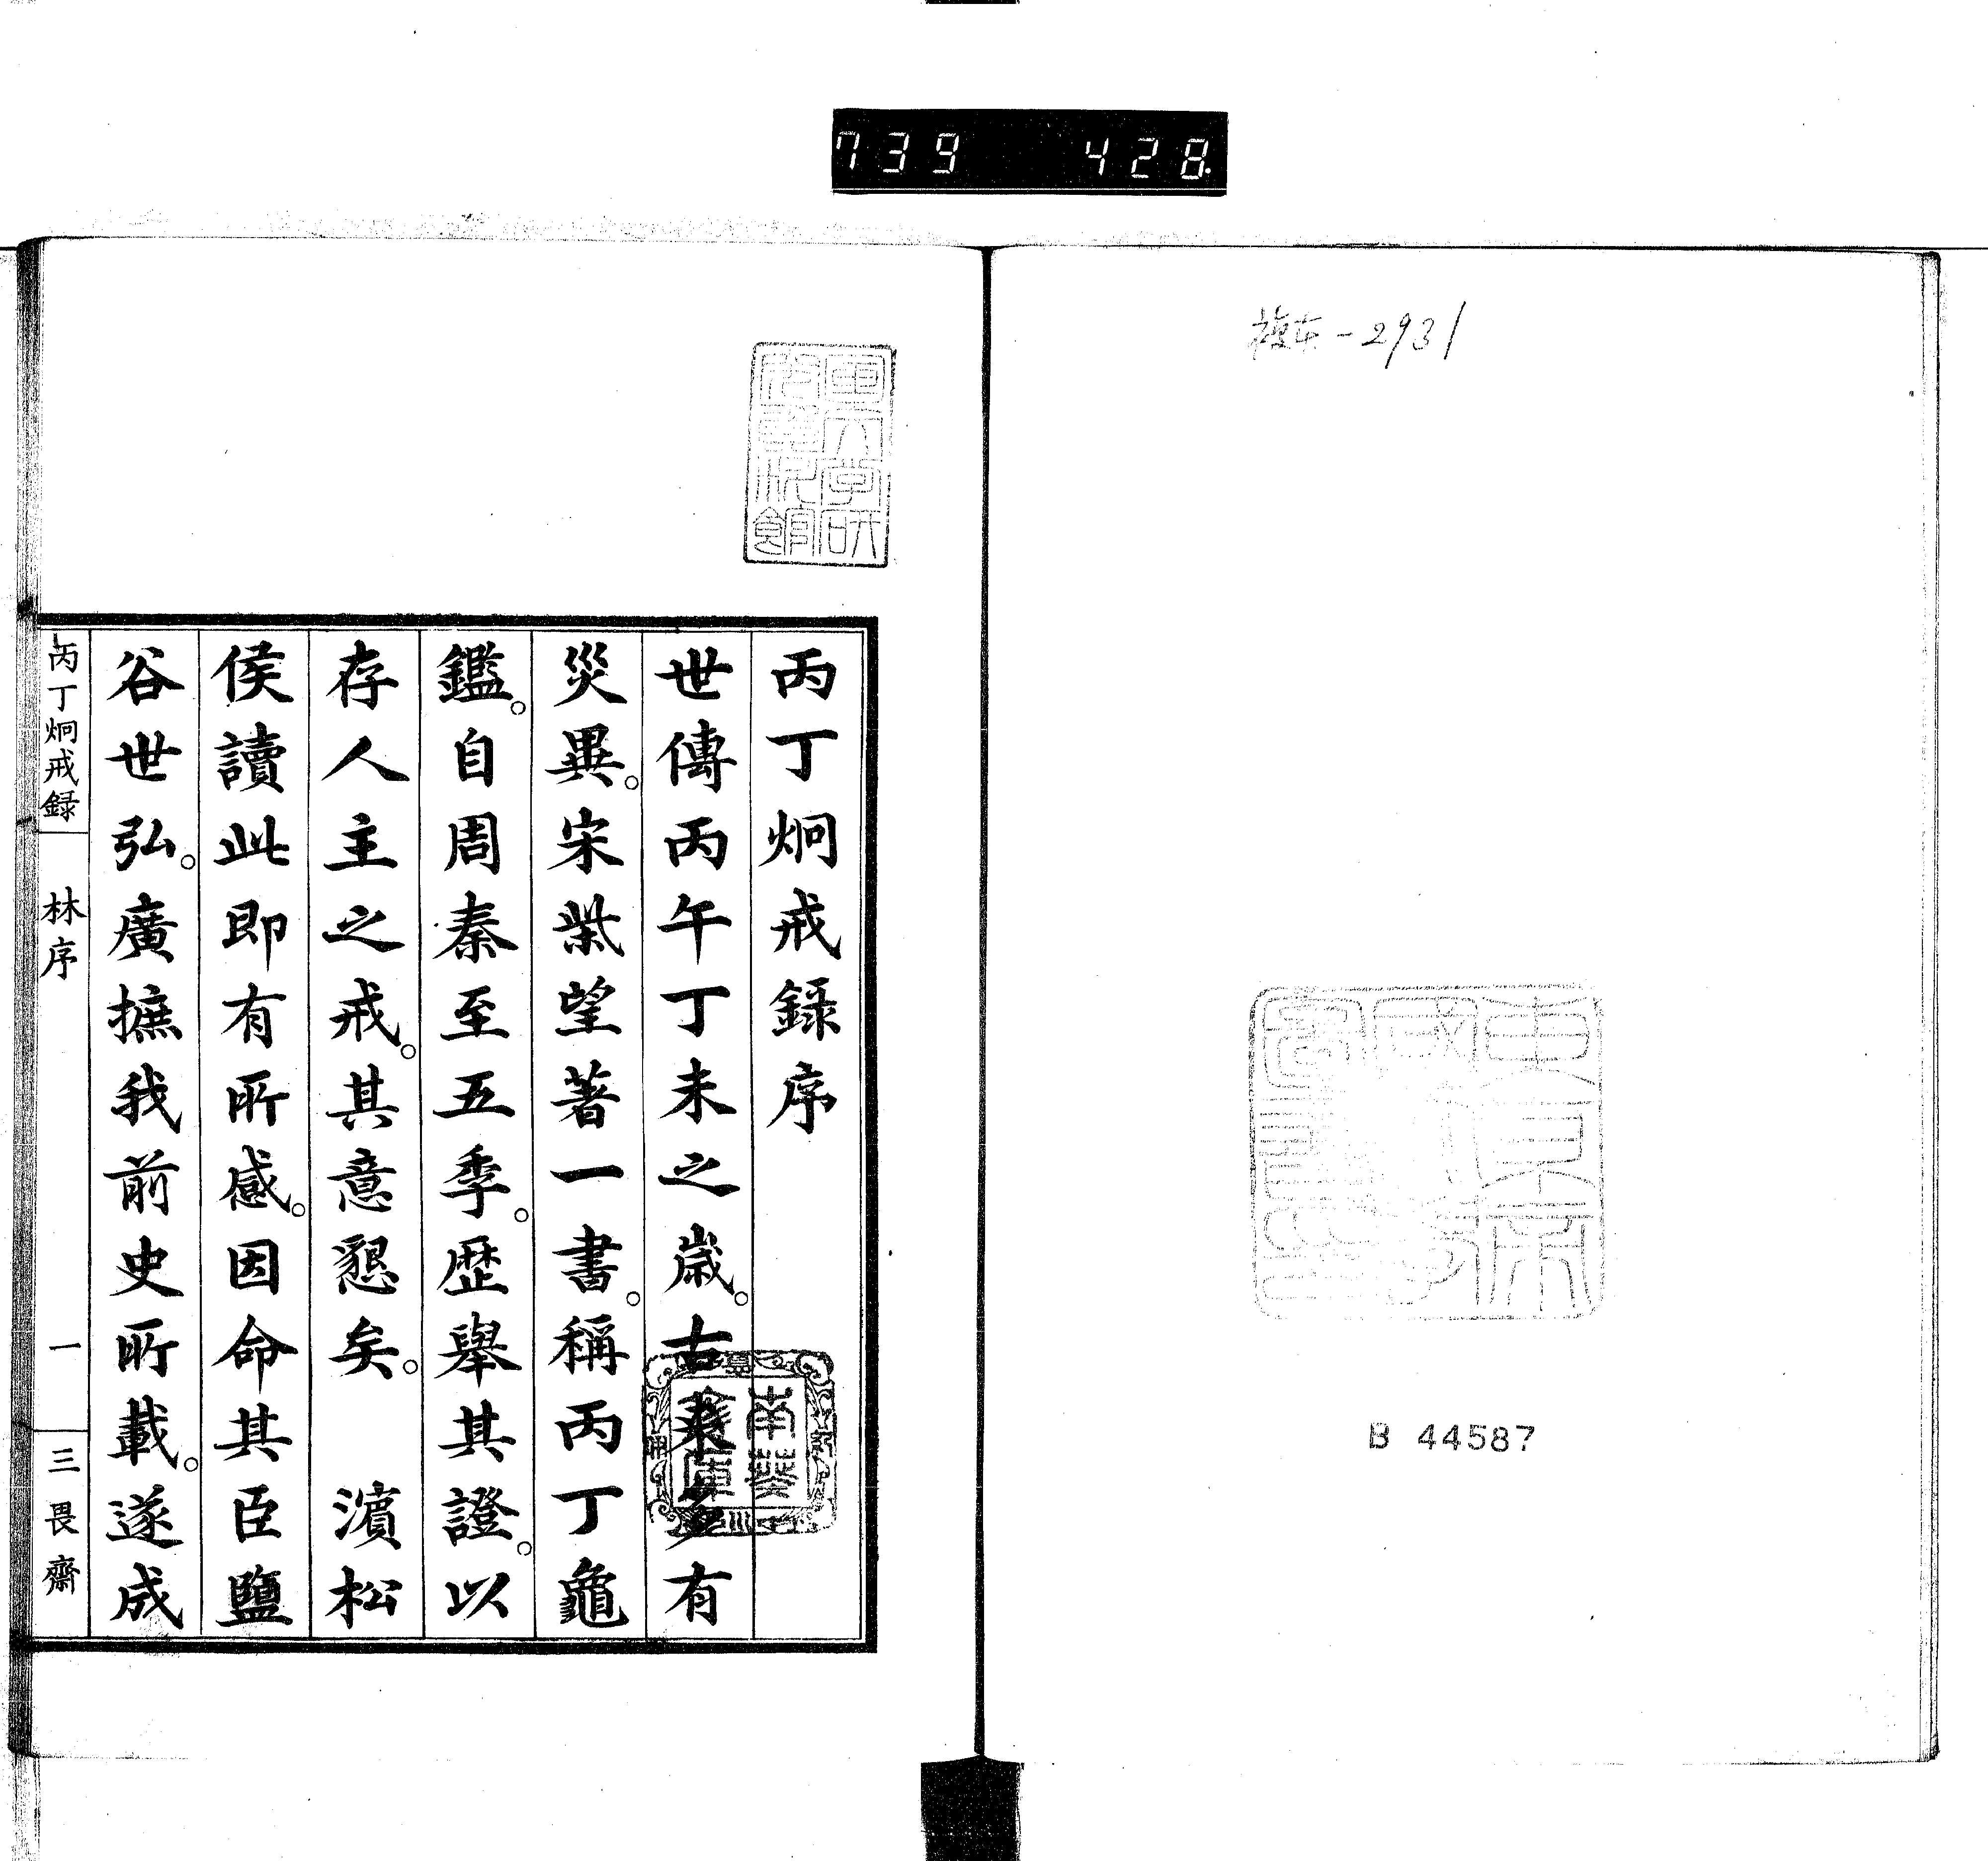 739 428
複本-2931
B 44587
丙丁烱戒錄序
世傳丙午丁未之歲。古來多有
災異。宋柴望著一書。稱丙丁龜
鑑。自周秦至五季。歴舉其證。以
存人主之戒。其意懇矣。 濵松
侯讀此即有所感。因命其臣鹽
谷世弘。廣摭我前史所載。遂成
丙丁烱戒録 林序 一 三畏齋